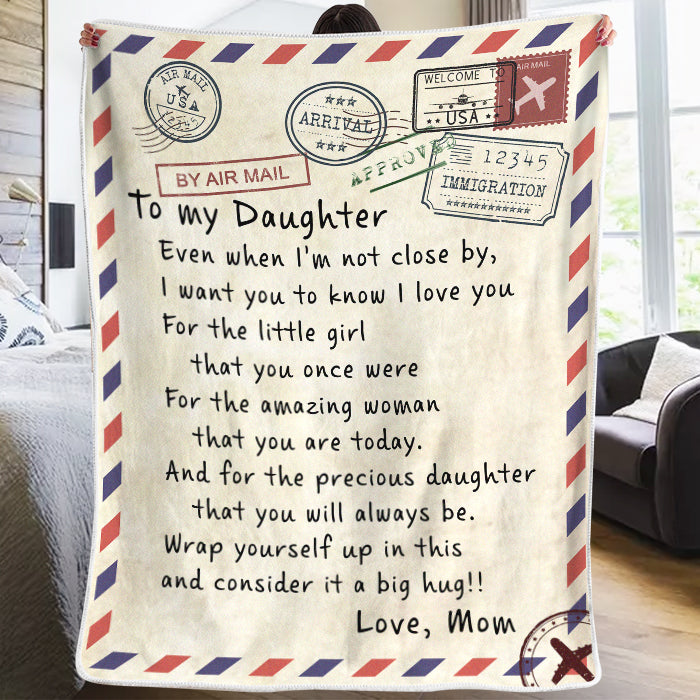 AIR MAIL
USA
ARRIVAL
WELCOME TO
USA
AIR MAIL
APPROVED
12345
IMMIGRATION
BY AIR MAIL
To my Daughter
Even when I'm not close by,
I want you to know I love you
For the little girl
that you once were
For the amazing woman
that you are today.
And for the precious daughter
that you will always be.
Wrap yourself up in this
and consider it a big hug!!
Love, Mom